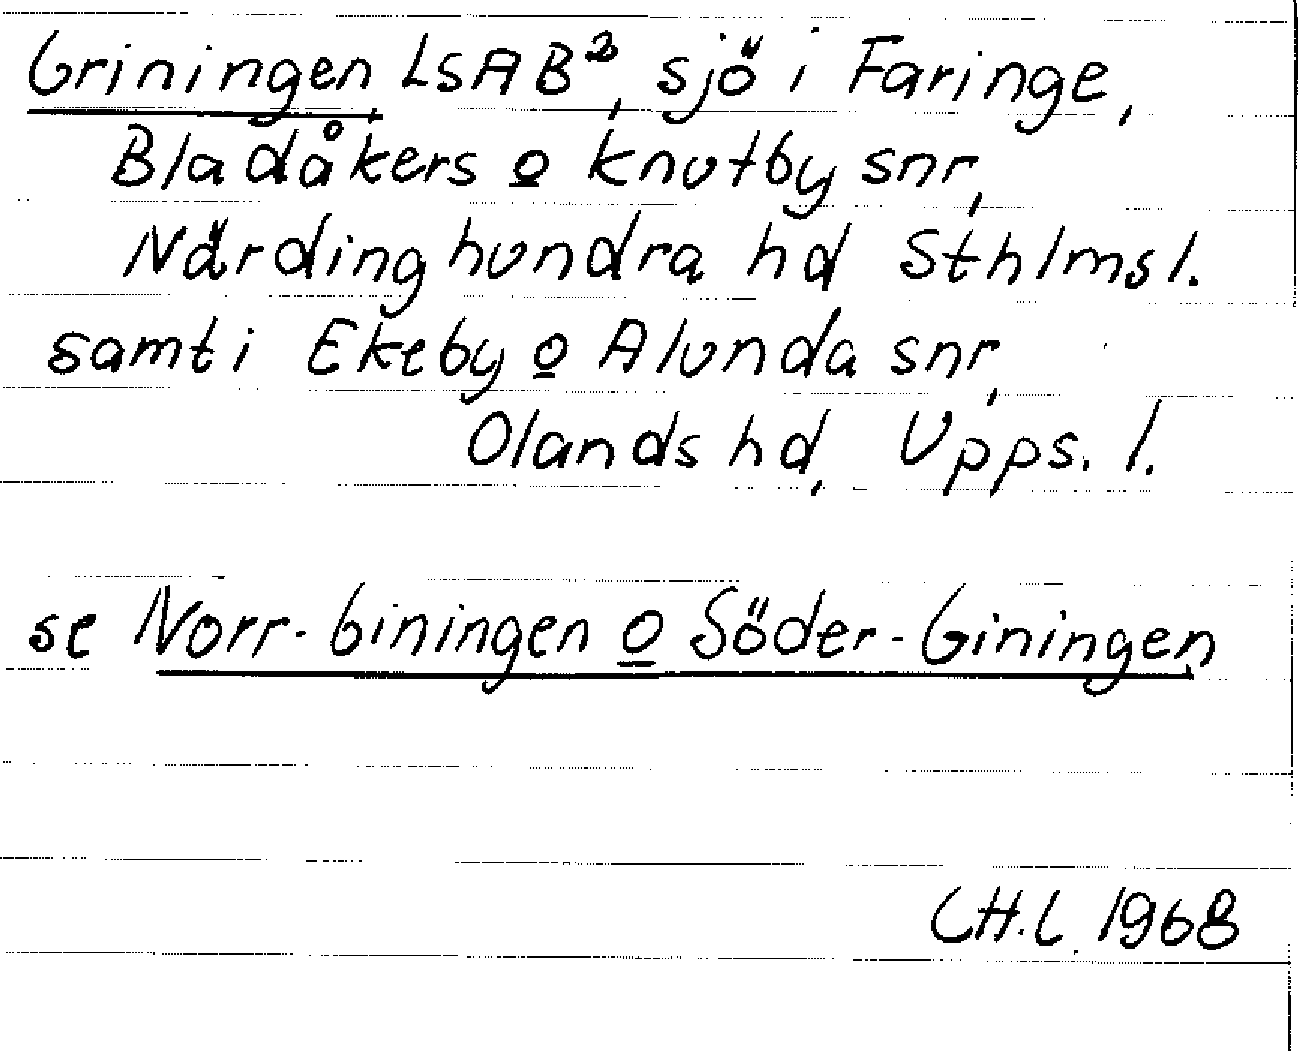 Griningen, LSAB², sjö i Faringe,
Bladåkers o Knutby snr,
Närdinghundra hd Sthlms l.
samt i Ekeby o Alunda snr,
Olands hd, Upps. l.
se Norr-Giningen o Söder-Giningen
CH.L. 1968